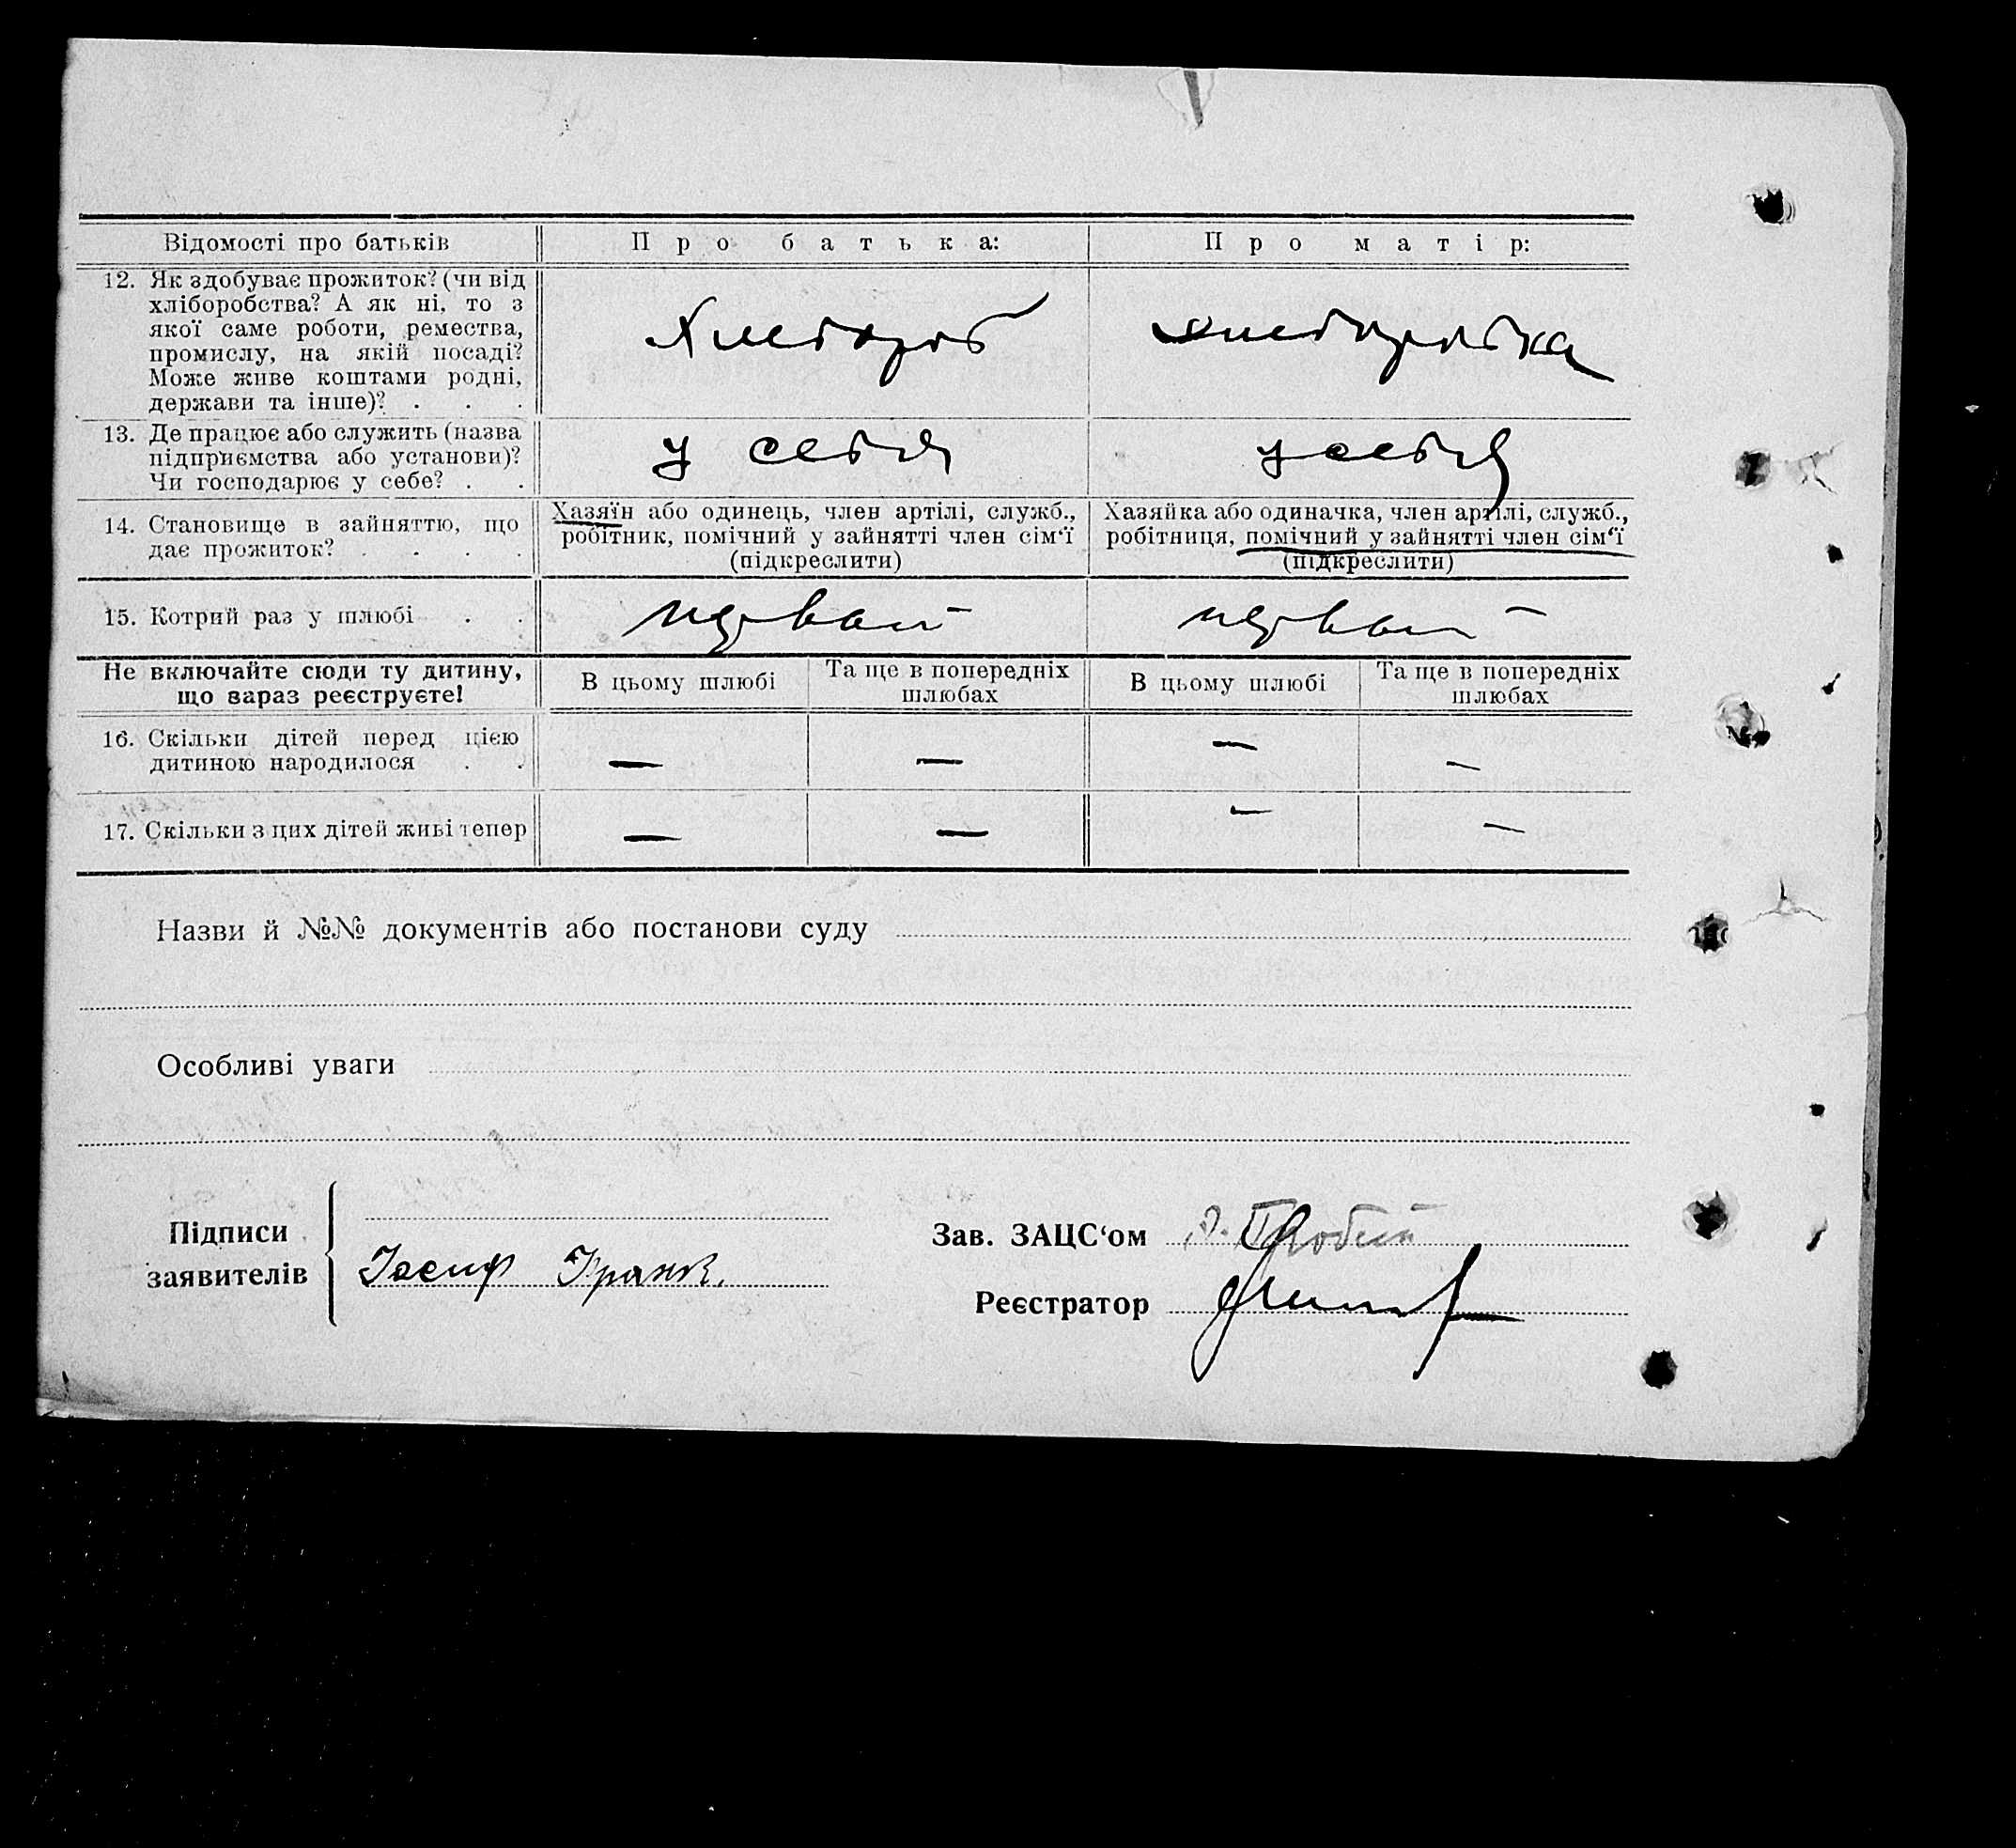 Відомості про батьків
Про батька:
Про матір:
12. Як здобуває прожиток? (чи від
хліборобства? А як ні, то з
якої саме роботи, ремества,
промислу, на якій посаді?
Може живе коштами родні,
держави та інше)? . . .
Хлебороб
хлеборобка
13. Де працює або служить (назва
підприємства або установи)?
Чи господарює у себе? . .
у себя
у себя
14. Становище в зайняттю, що
дає прожиток? . . . .
Хазяїн або одинець, член артілі, служб.,
робітник, помічний у зайнятті член сім‘ї
(підкреслити)
Хазяйка або одиначка, член артілі, служб.,
робітниця, помічний у зайнятті член сім‘ї
(підкреслити)
15. Котрий раз у шлюбі . .
первый
первый
Не включайте сюди ту дитину,
що зараз реєструєте!
В цьому шлюбі
Та ще в попередніх
шлюбах
В цьому шлюбі
Та ще в попередніх
шлюбах
16. Скільки дітей перед цією
дитиною народилося . .
— — — —
17. Скільки з цих дітей живі тепер
— — — —
Назви й №№ документів або постанови суду
Особливі уваги
Підписи
заявителів
Іосиф Франк.
Зав. ЗАЦС‘ом
Реєстратор